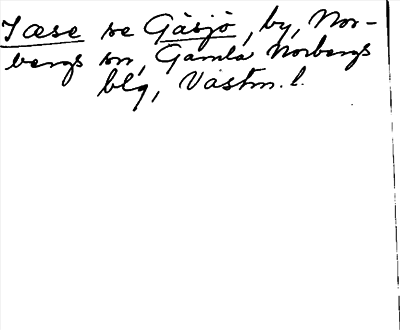 Jæse se Gåsjö, by, Nor-
bergs sn, Gamla Norbergs
blg, Västm. l.